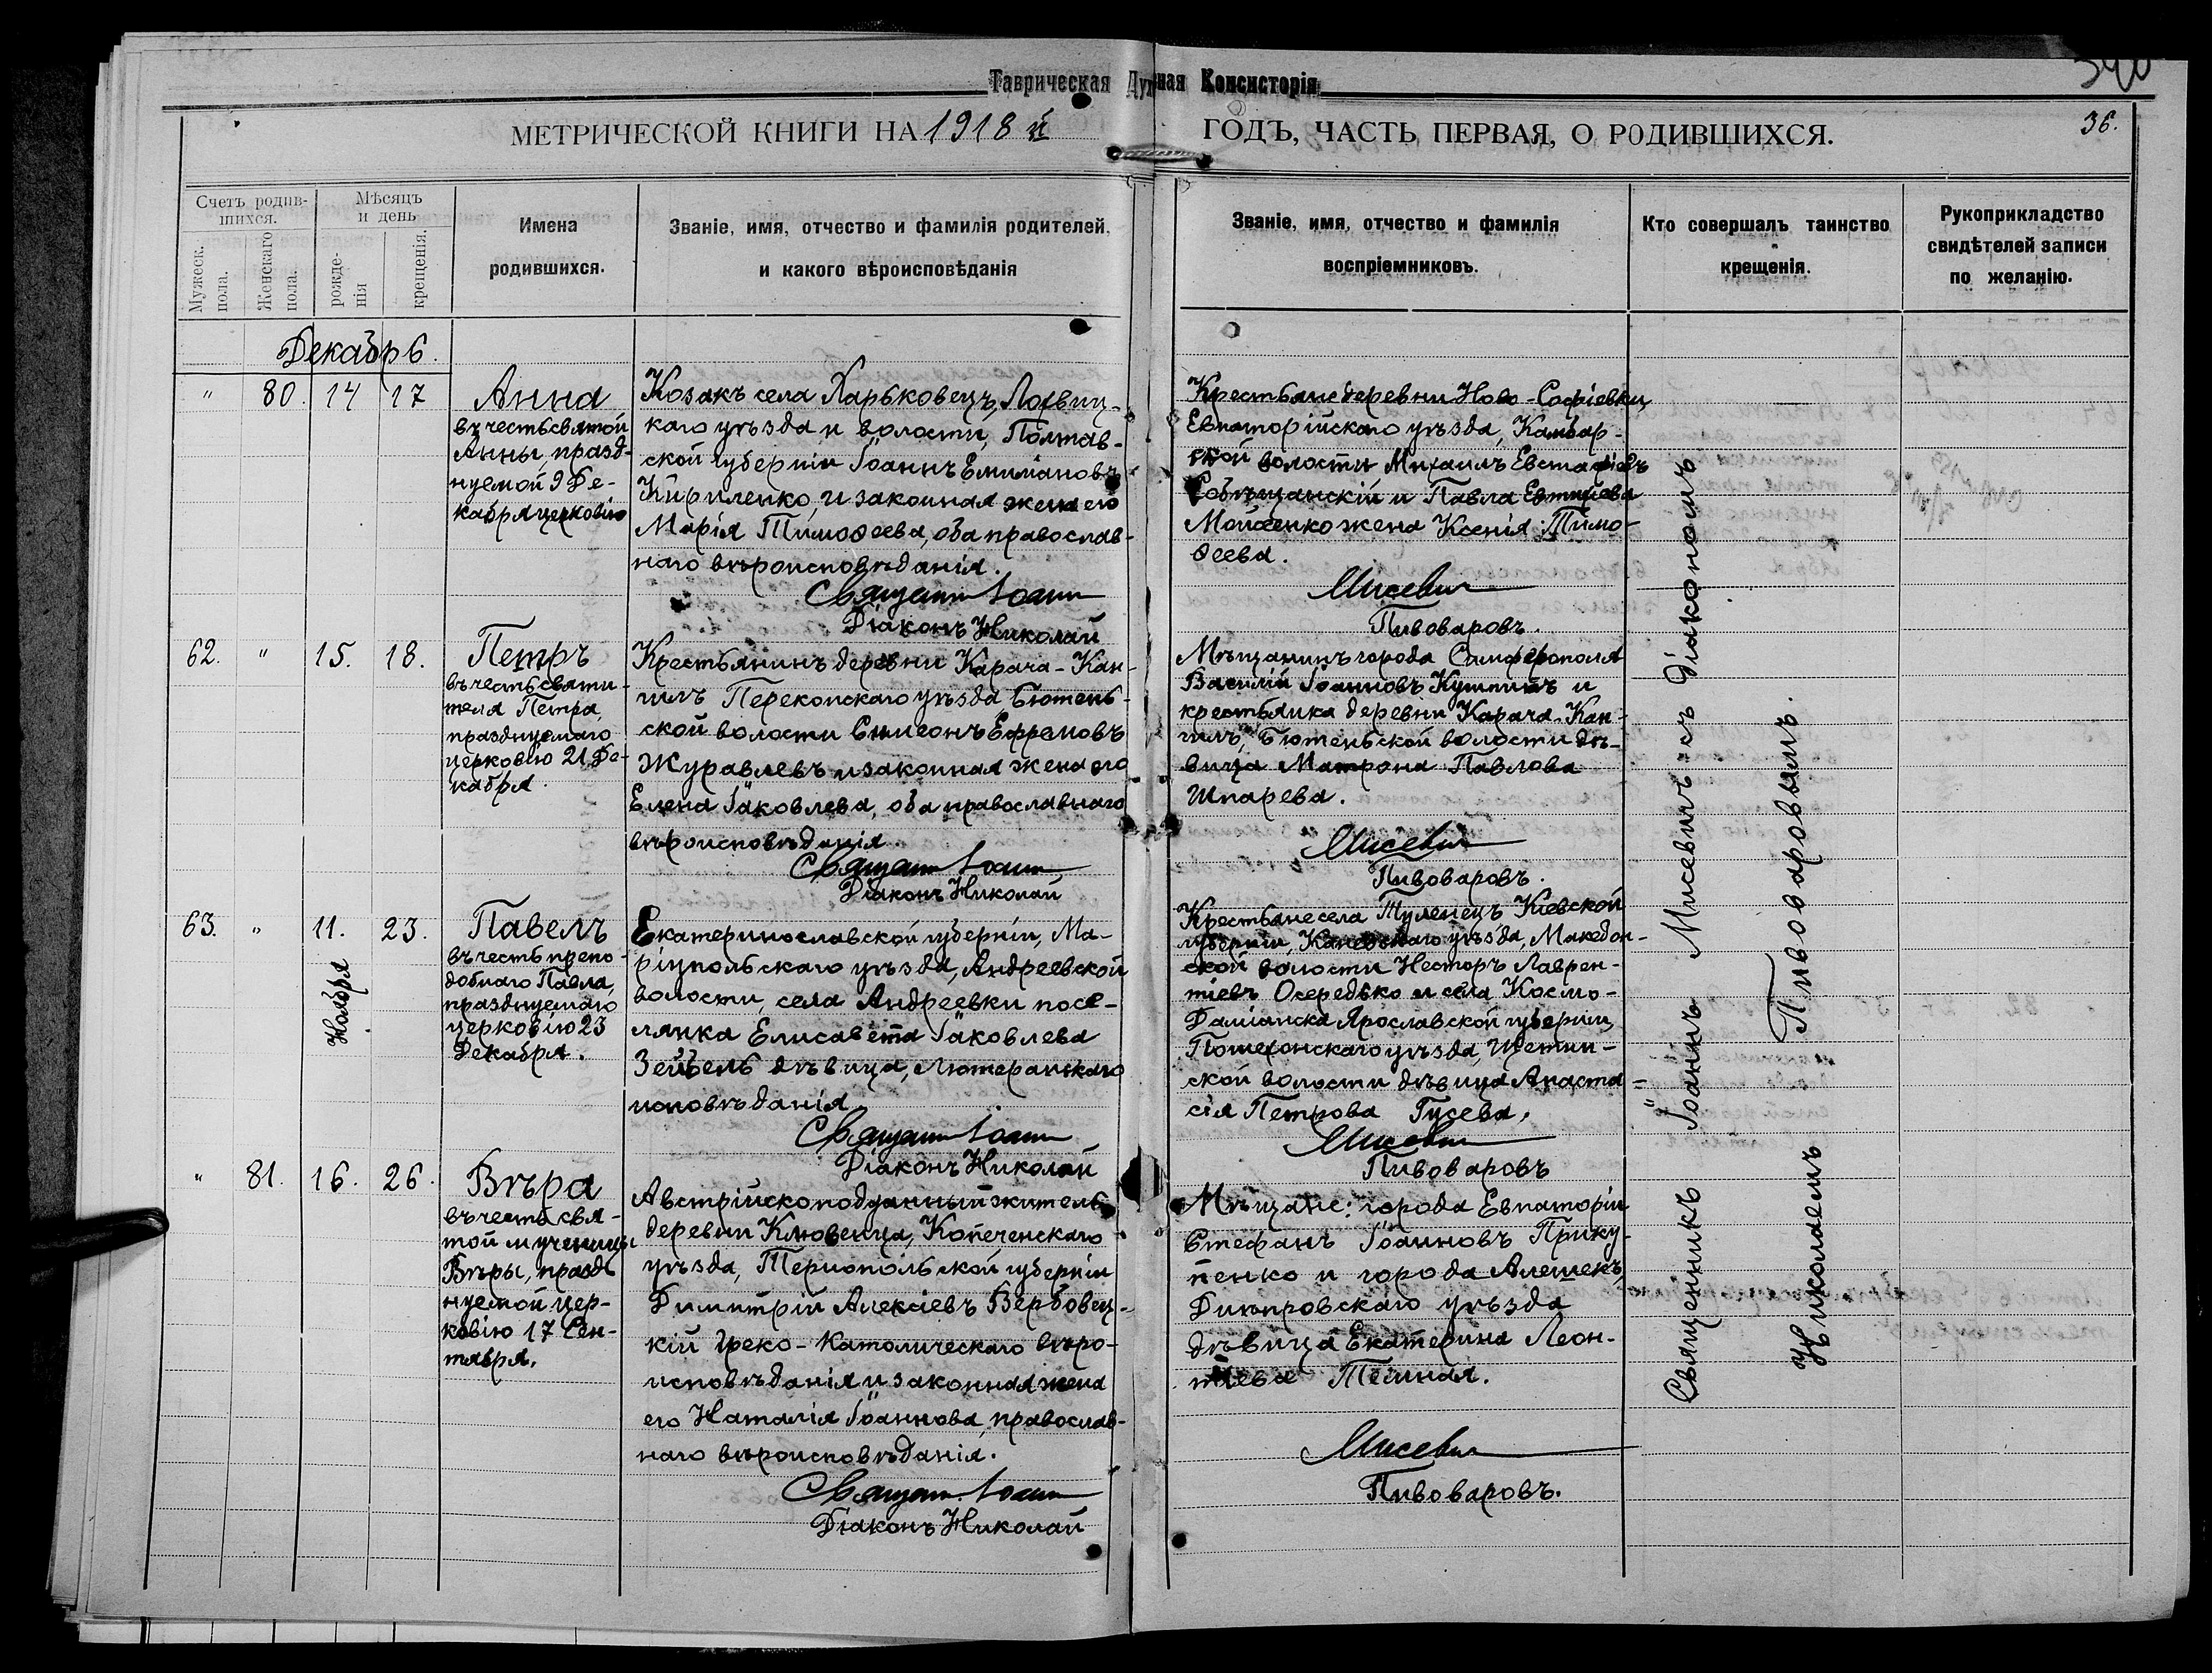 Таврическая Духовная Консисторія
36.
МЕТРИЧЕСКОЙ КНИГИ НА 1918 й ГОДЪ, ЧАСТЬ ПЕРВАЯ, О РОДИВШИХСЯ.
Счетъ родив-
шихся.
Мужеск.
пола.
Женскаго
пола.
Мѣсяцъ
и день
рожде-
нія
крещенія.
Имена
родившихся.
Званіе, имя, отчество и фамилія родителей,
и какого вѣроисповѣданія
Званіе, имя, отчество и фамилія
воспріемниковъ.
Кто совершалъ таинство
крещенія.
Рукоприкладство
свидѣтелей записи
по желанію.
Декабрь.
" 80. 14 17
Анна
въ честь святой
Анны празд-
нуемой 9 Де-
кабря церковію
Козакъ села Харьковецъ, Лохвиц-
каго уѣзда и волости, Полтав-
ской губерніи Іоаннъ Емиліановъ
Кириленко, и законная жена его
Марія Тимоѳеева, оба православ-
наго вѣроисповѣданія.
Священн. Іоанн
Діаконъ Николай
Крестьяне деревни Ново-Софіевки,
Евпаторійскаго уѣзда, Камбар-
ской волости Михаилъ Евстафіевъ
и Павла
Мойсенко жена Ксенія Тимо-
ѳеева.
Мисевич
Пивоваровъ.
62. " 15. 18.
Петръ
въ честь святи-
теля Петра,
празднуемаго
церковію 21 Де-
кабря.
Крестьянинъ деревни Карача-Кан-
гилъ Перекопскаго уѣзда Бютень-
ской волости Симеонъ Ефремовъ
Журавлевъ и законная жена его
Елена Іаковлева, оба православнаго
вѣроисповѣданія.
Священн Іоанн
Діаконъ Николай
Мѣщанинъ города Симферополя
Василій Іоанновъ и
крестьянка деревни Карача-Кан-
гилъ, Бютеньской волости дѣ-
вица Матрона Павлова
Шпарева.
Мисевич
Пивоваровъ.
63. " 11. 23.
Ноября
Павелъ
въ честь препо-
добнаго Павла,
празднуемаго
церковію 23
Декабря.
Екатеринославской губерніи, Ма-
ріупольскаго уѣзда, Андреевской
волости, села Андреевки посе-
лянка Елисавета Іаковлева
Зейбель дѣвица, Лютеранскаго
исповѣданія.
Священн Іоанн
Діаконъ Николай
Крестьяне села Туленецъ Кіевской
губерніи, Каневскаго уѣзда, Македон-
ской волости Несторъ Лаврен-
тіевъ Осередько и села Космо-
Даміанска Ярославской губерніи,
Пошехонскаго уѣзда, Щетин-
ской волости дѣвица Анаста-
сія Петрова Гусева.
Мисевич
Пивоваровъ
" 81. 16. 26.
Вѣра
въ честь свя-
той мученицы
Вѣры, празд-
нуемой цер-
ковію 17 Сен-
тября.
Австрійскоподданный житель
деревни Клювенца, Копеченскаго
уѣзда, Тернопольской губерніи
Димитрій Алексіевъ Вербовец-
кій Греко-Католическаго вѣро-
исповѣданія и законная жена
его Наталія Іоаннова, православ-
наго вѣроисповѣданія.
Священн. Іоанн
Діаконъ Николай
Мѣщане: города Евпаторіи
Стефанъ Іоанновъ Прику-
пенко и города Алешекъ,
Днѣпровскаго уѣзда
дѣвица Екатерина Леон-
тіева Темная.
Мисевич
Пивоваровъ.
Священникъ Іоаннъ Мисевичъ съ діакономъ
Николаемъ Пивоваровымъ.